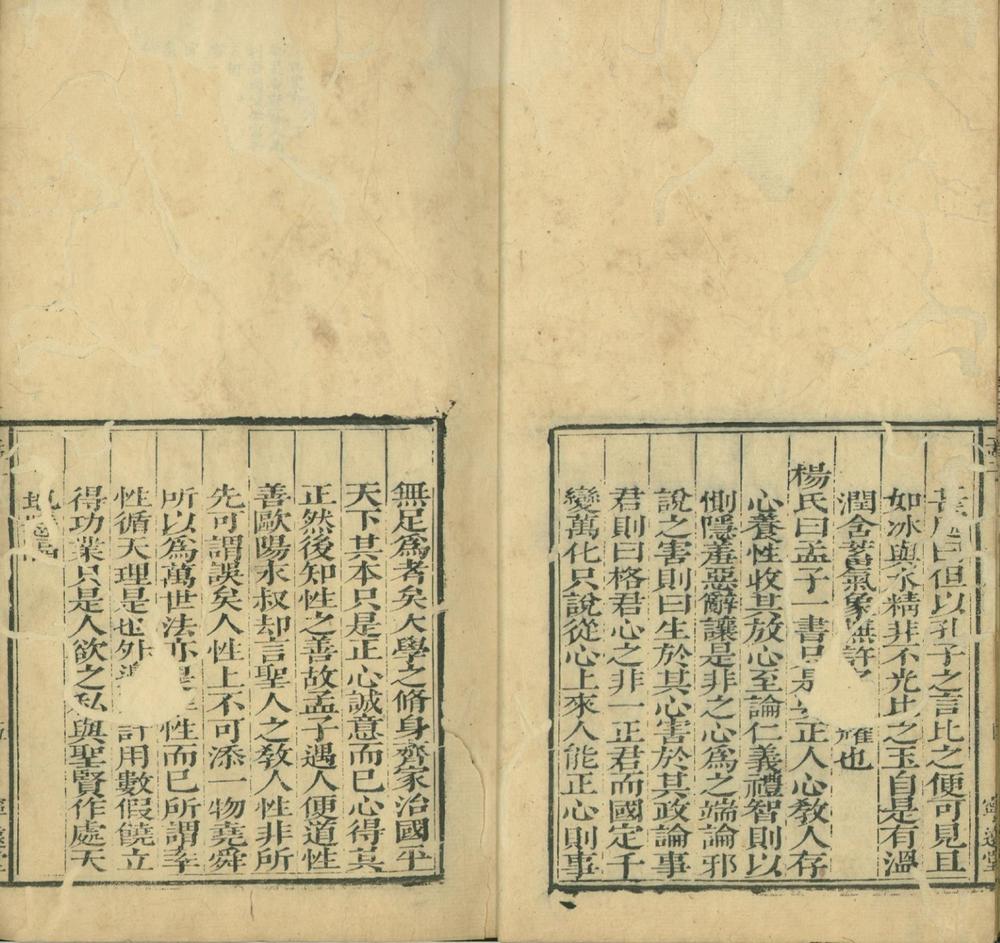 見曰但以孔子之言比之便可見且
如冰與水精非不光比之玉自是有溫
潤含蓄氣象無許也
楊氏曰孟子一書只是正人心教人存
心養性收其放心至論仁義禮智則以
惻隱羞惡辭讓是非之心為之端論邪
說之害則曰生於其心害於其政論事
君則曰格君心之非一正君而國定千
變萬化只說從心上來人能正心則事
無足為者矣大學之脩身齊家治國平
天下其本只是正心誠意而已心得其
正然後知性之善故孟子遇人便道性
善歐陽永叔却言聖人之教人性非所
先可謂誤矣人性上不可添一物堯舜
所以為萬世法亦是性而已所謂率
性循天理是也外計用數假饒立
得功業只是人欲之私與聖賢作處天
地